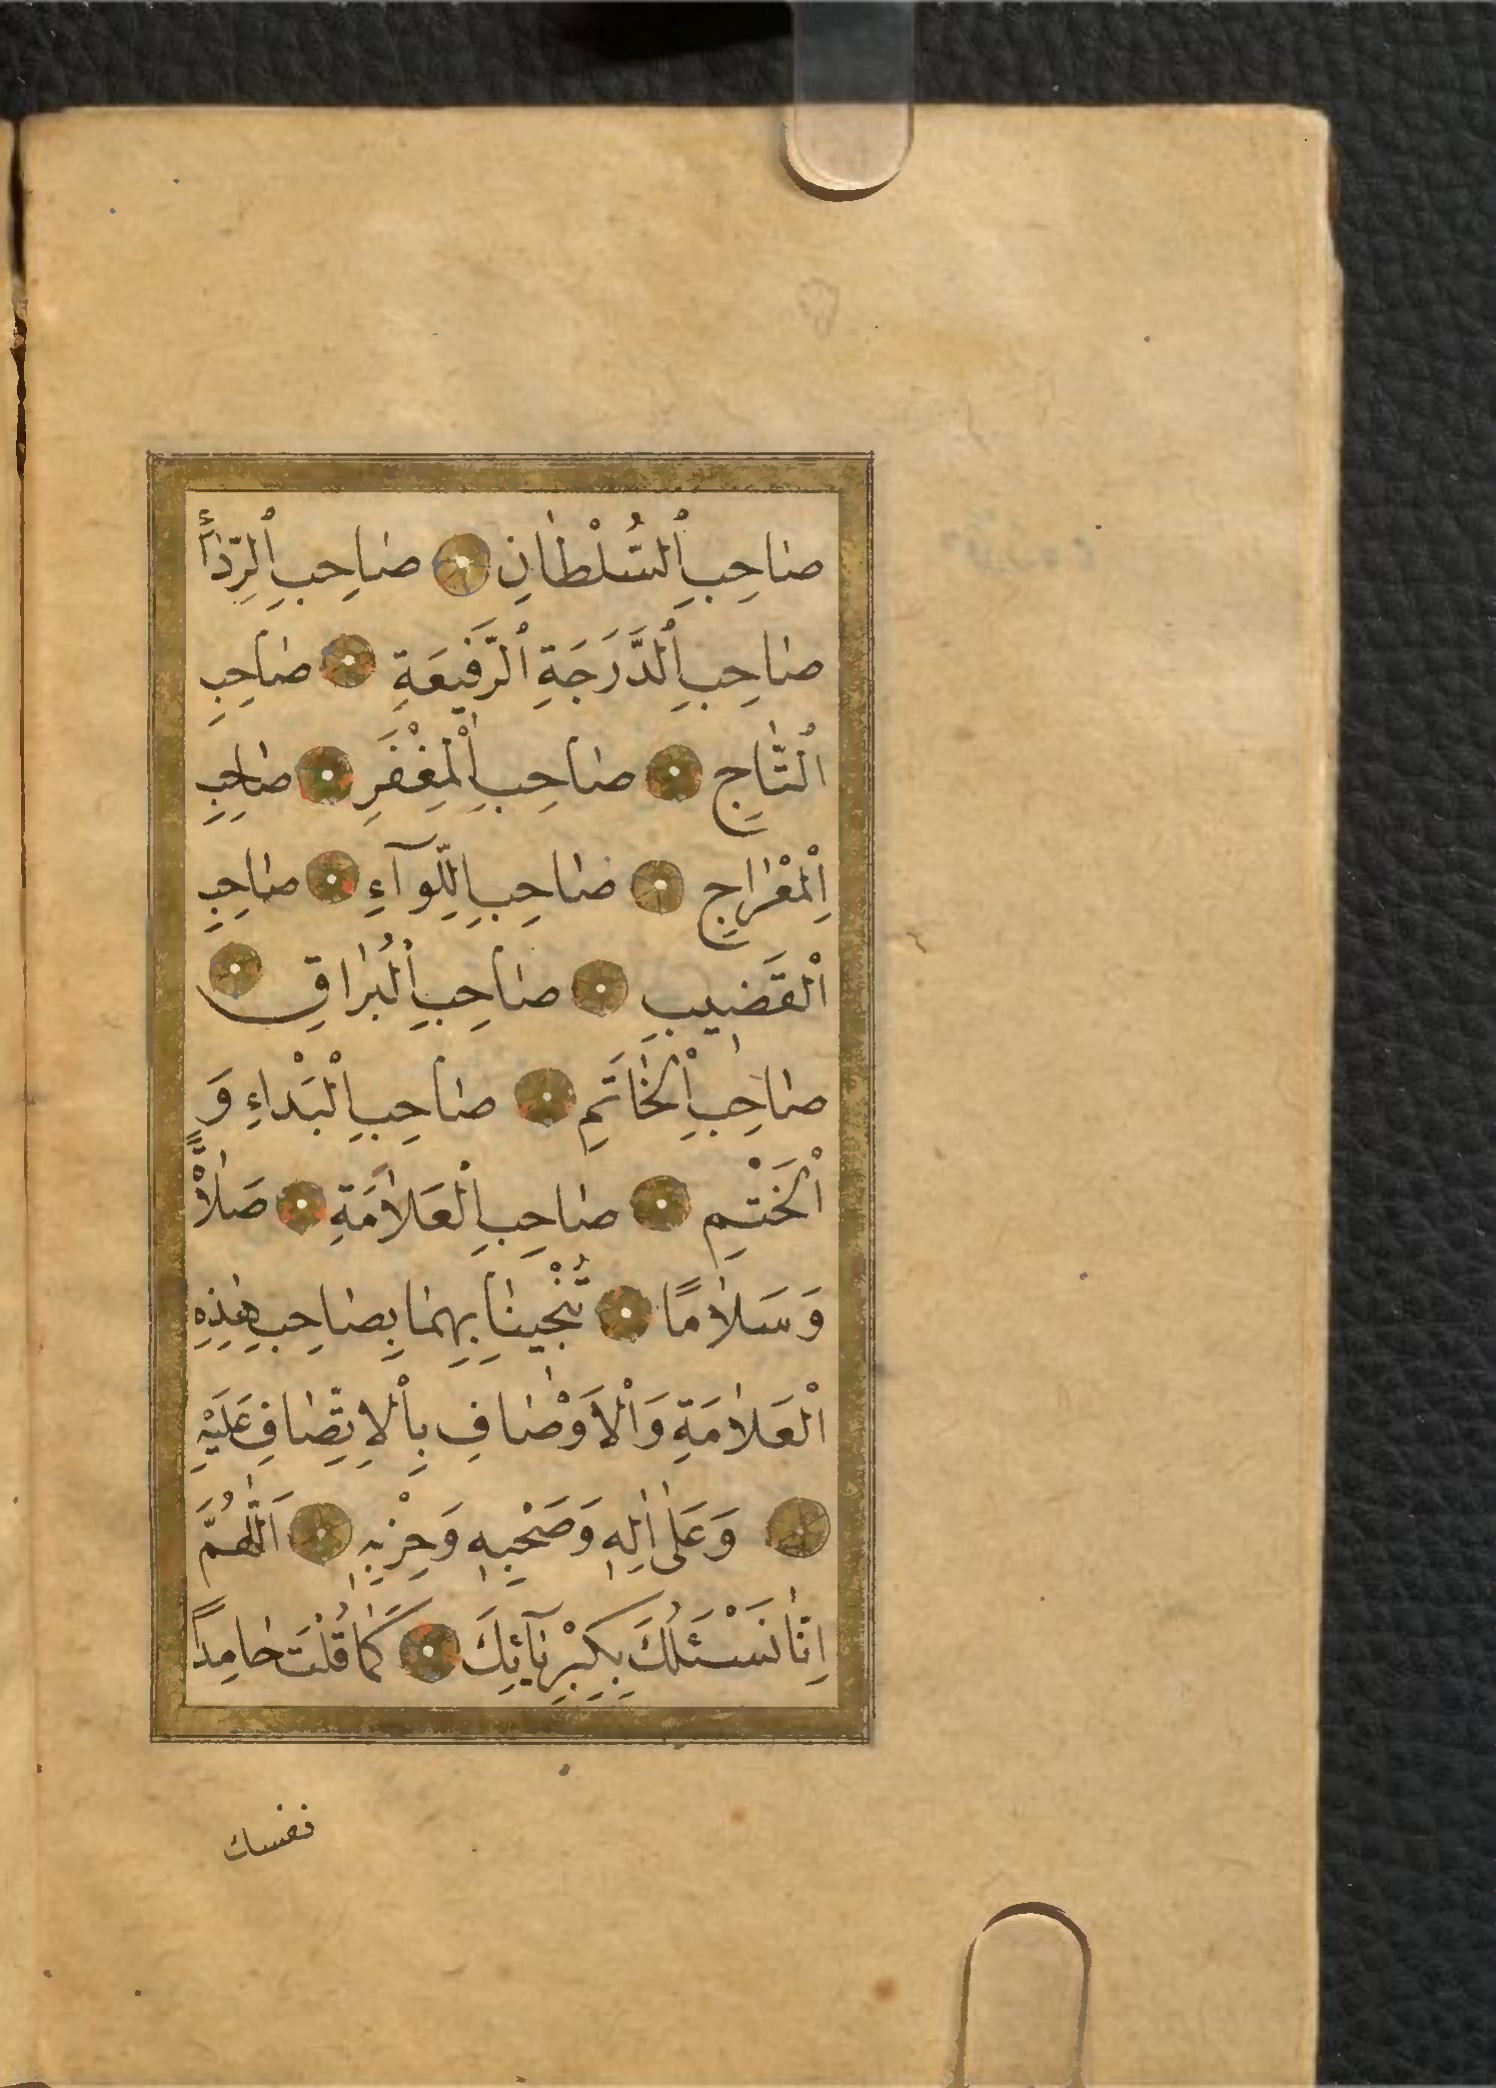 صَاحِبِ ٱلسُّلْطَانِ صَاحِبِ ٱلرِّدَاءِ
صَاحِبِ ٱلدَّرَجَةِ ٱلرَّفِيعَةِ صَاحِبِ
ٱلتَّاجِ صَاحِبِ ٱلْمِغْفَرِ صَاحِبِ
اِلْمعْرَاجِ صَاحِبِ اللِّوَآءِ صَاحِبِ
اْلقَضِيبِ صَاحِبِ اْلبُرَاقِ
صَاحِبِ اْلخَاتَمِ صَاحِبِ اْلبَدْاءِ وَ
اْلخَتْمِ صَاحِبِ اْلعَلَامَةِ صَلَاةً
وَسَلَامًا تُنْجِينَا بِهِمَا بِصَاحِبِ هٰذِهِ
اْلعَلَامَةِ وَاْلاَوْصَافِ بِاْلاِتِّصَافِ عَلَيْهِ
وَعَلٰى اٰلِهٖ وَصَحْبِهٖ وَحِزْبِهٖ اَللّٰهُمَّ
اِنَّا نَسْئَلُكَ بِكِبْرِيَآئِكَ كَمَا قُلْتَ حَامِدًا
نفسك